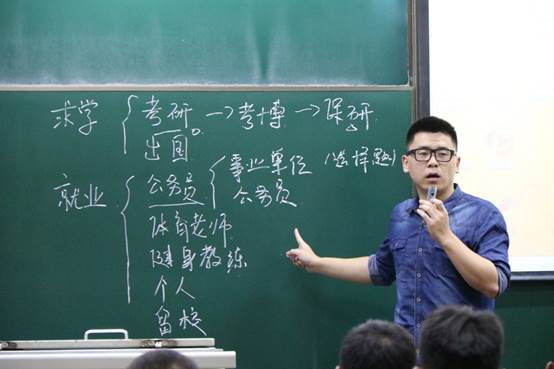 求学 { 考研 → 考博 → 保研
出国。
就业 { 公务员 { 事业单位 (选择题)
公务员
体育老师
健身教练
个人
留校